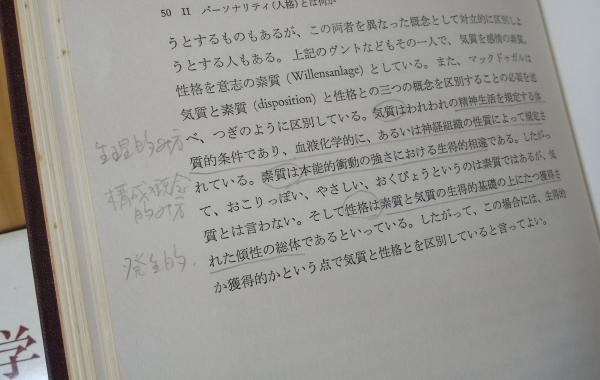 50 II パーソナリティ(人格)とは何か
うとするものもあるが、この両者を異なった概念として対立的に区別しよ
うとする人もある。上記のヴントなどもその一人で、気質を感情の素質、
性格を意志の素質(Willensanlage)としている。また、マックドゥガルは
気質と素質(disposition)と性格との三つの概念を区別することの必要を述
べ、つぎのように区別している。気質はわれわれの精神生活を規定する体
質的条件であり、血液化学的に、あるいは神経組織の性質によって規定さ
れている。素質は本能的衝動の強さにおける生得的相違である。したがっ
て、おこりっぽい、やさしい、おくびょうというのは素質ではあるが、気
質とは言わない。そして性格は素質と気質の生得的基礎の上にたつ獲得さ
れた傾性の総体であるといっている。したがって、この場合には、生得的
か獲得的かという点で気質と性格とを区別していると言ってよい。
的み方
概念
的み方
発生的
学